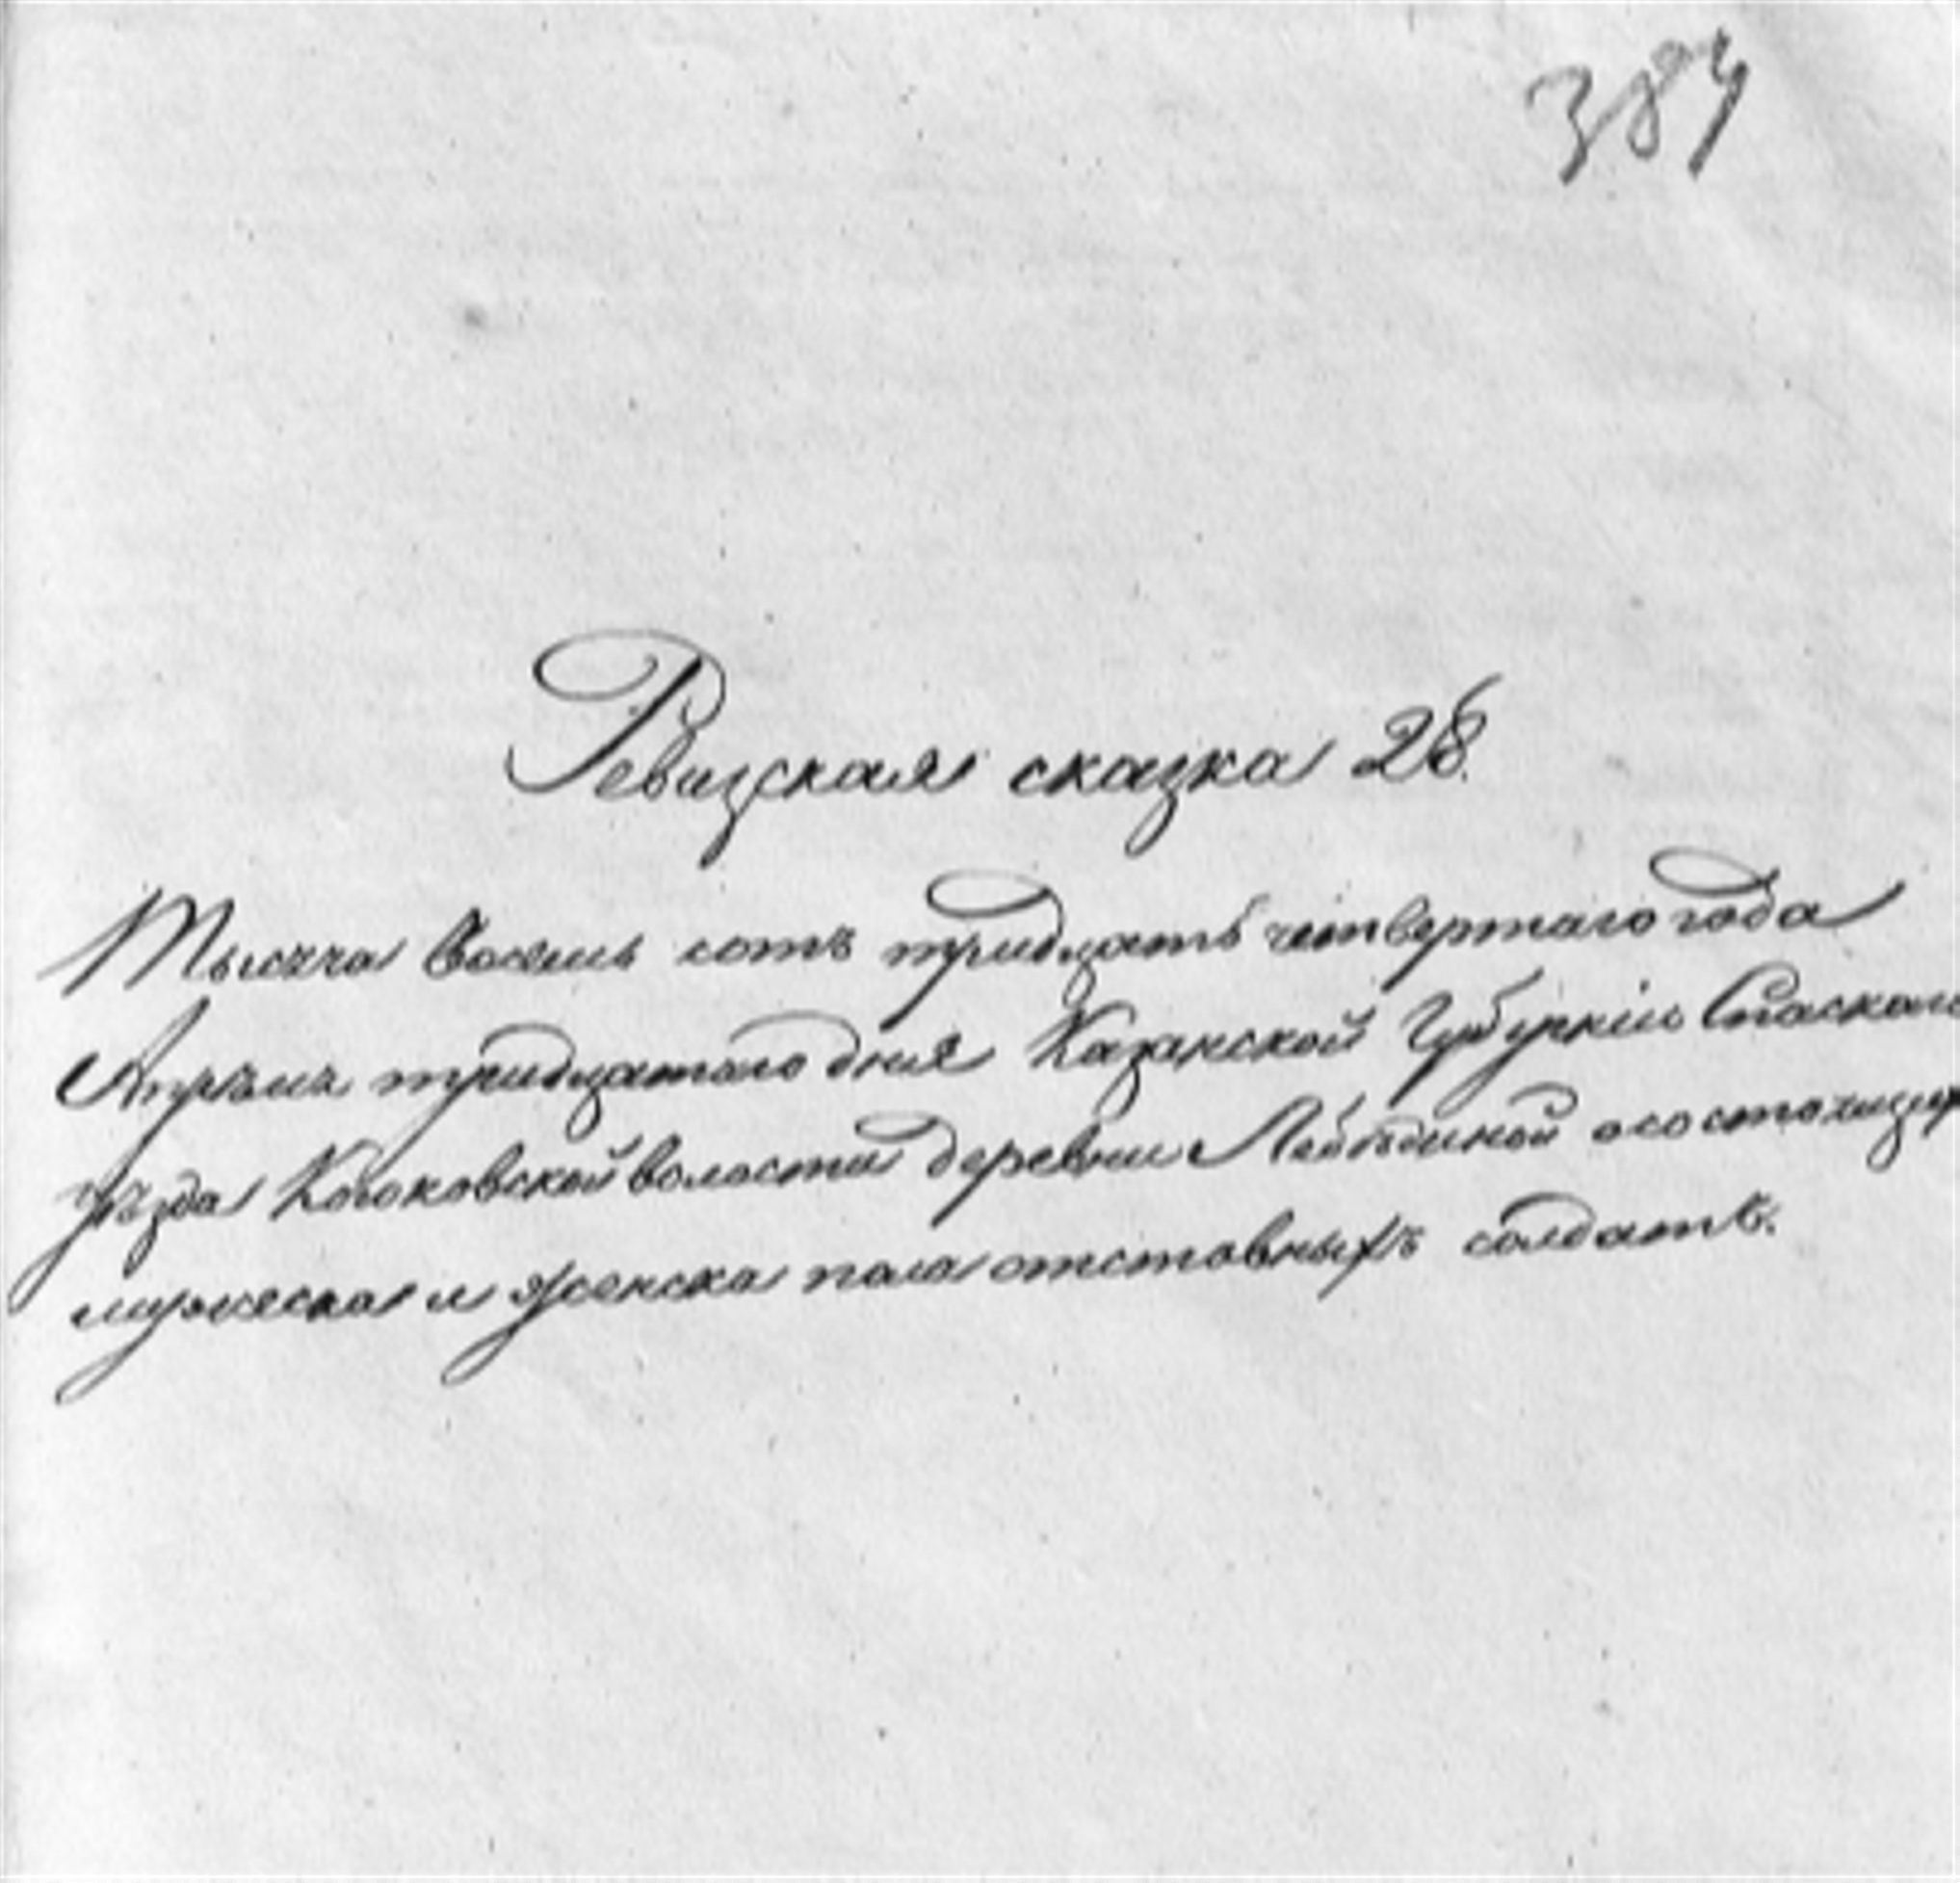 384
Ревизская сказка 28.
Тысяча Восемь сотъ тридцать четвертаго года
Апрѣля тридцатаго дня Казанской Губерніи Спаскаго
уѣзда Кококовской волости деревни Лебѣдиной о состоящихъ
мужеска и женска пола отставныхъ солдатъ.